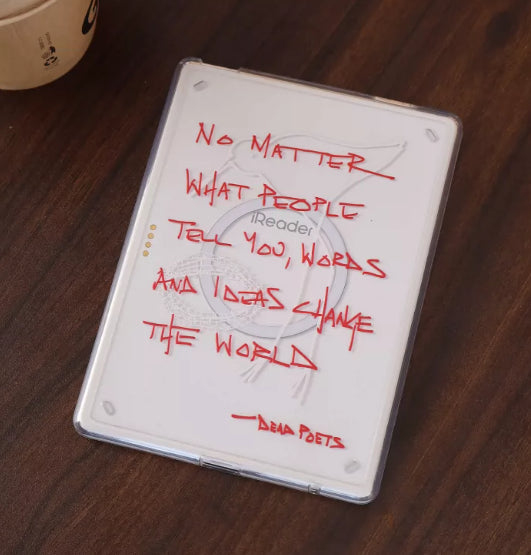 NO MATTER
WHAT PEOPLE
iReader
TELL YOU, WORDS
AND IDEAS CHANGE
THE WORLD
—DEAD POETS